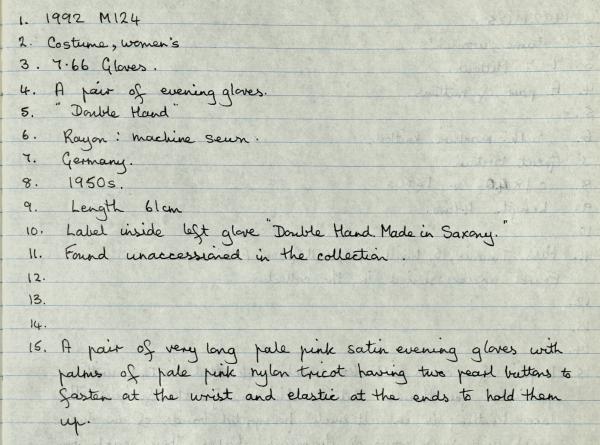 1. 1992 M124
2. Costume, women's
3. 7.66 Gloves.
4. A pair of evening gloves.
5. "Double Hand"
6. Rayon: machine sewn.
7. Germany.
8. 1950s.
9. Length 61cm
10. Label inside left glove "Double Hand. Made in Saxony."
11. Found unaccessioned in the collection.
12.
13.
14.
15. A pair of very long pale pink satin evening gloves with
palms of pale pink nylon tricot having two pearl buttons to
fasten at the wrist and elastic at the ends to hold them
up.